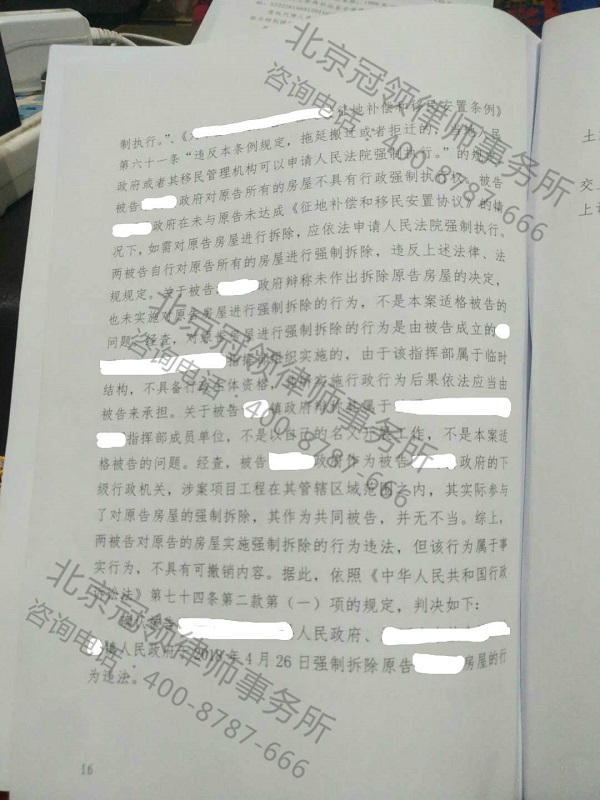 征地补偿和移民安置条例》
制执行。”、《
第六十一条“违反本条例规定，拖延搬迁或者拒迁的，当地人民
政府或者其移民管理机构可以申请人民法院强制执行。”的规定
被告 政府对原告所有的房屋不具有行政强制执行权，被告
政府在未与原告未达成《征地补偿和移民安置协议》的情
况下，如需对原告房屋进行拆除，应依法申请人民法院强制执行、
两被告自行对原告所有的房屋进行强制拆除，违反上述法律、法
规规定。关于被告 政府辩称未作出拆除原告房屋的决定，
也未实施对原告房屋进行强制拆除的行为，不是本案适格被告的
问题。经查，对原告房屋进行强制拆除的行为是由被告成立的
指挥部组织实施的，由于该指挥部属于临时
结构，不具备行政主体资格，其所实施行政行为后果依法应当由
被告来承担。关于被告 镇政府辩称其属于
指挥部成员单位，不是以自己的名义开展工作，不是本案适
格被告的问题。经查，被告 政府作为被告 政府的下
级行政机关，涉案项目工程在其管辖区域范围之内，其实际参与
了对原告房屋的强制拆除，其作为共同被告，并无不当。综上，
两被告对原告的房屋实施强制拆除的行为违法，但该行为属于事
实行为，不具有可撤销内容。据此，依照《中华人民共和国行政
诉讼法》第七十四条第二款第（一）项的规定，判决如下：
人民政府、
镇人民政府于2018年4月26日强制拆除原告 房屋的行
为违法。
16
北京冠领律师事务所
咨询电话：400-8787-666
北京冠领律师事务所
咨询电话：400-8787-666
北京冠领律师事务所
咨询电话：400-8787-666
土
交
上